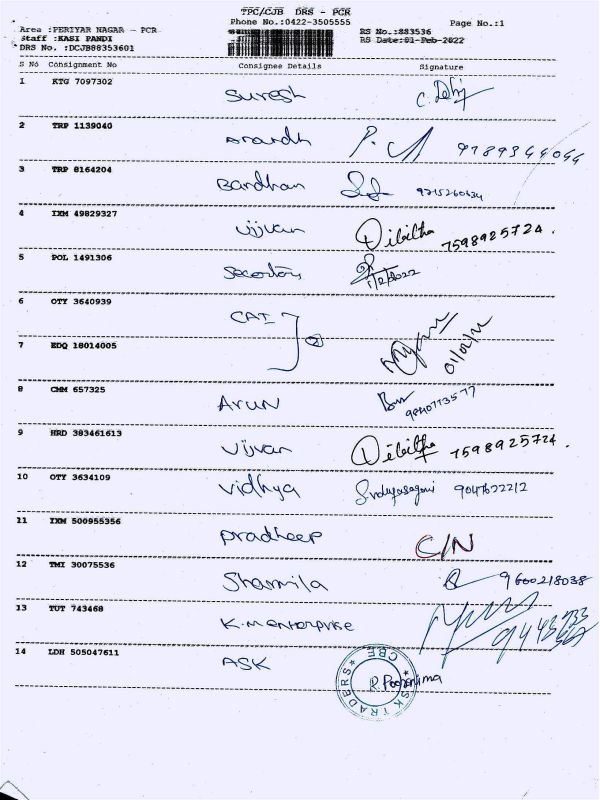 TPC/CJB DRS - PCR
Phone No.:0422-3505555 Page No.:1
Area :PERIYAR NAGAR - PCR RS No.:883536
Staff :KASI PANDI RS Date:01-Feb-2022
DRS No. :DCJB88353601
S No Consignment No Consignee Details Signature
1 KTG 7097302 Suresh
2 TRP 1139040 Anandh
3 TRP 8164204 Bardhan
4 IXM 49829327 Vijvan Dibitha 7598925724.
5 POL 1491306
6 OTY 3640939 CAI
7 EDQ 18014005 01/02/22
8 CMM 657325 Arun
9 HRD 383461613 Vijvan Dibitha 7598925724.
10 OTY 3634109 Vidhya
11 IXM 500955356 Pradheep C/N
12 TMI 30075536 Sharmila 9600218038
13 TUT 743468 K.M enterprise
14 LDH 505047611 ASK
ASK TRADERS CBE